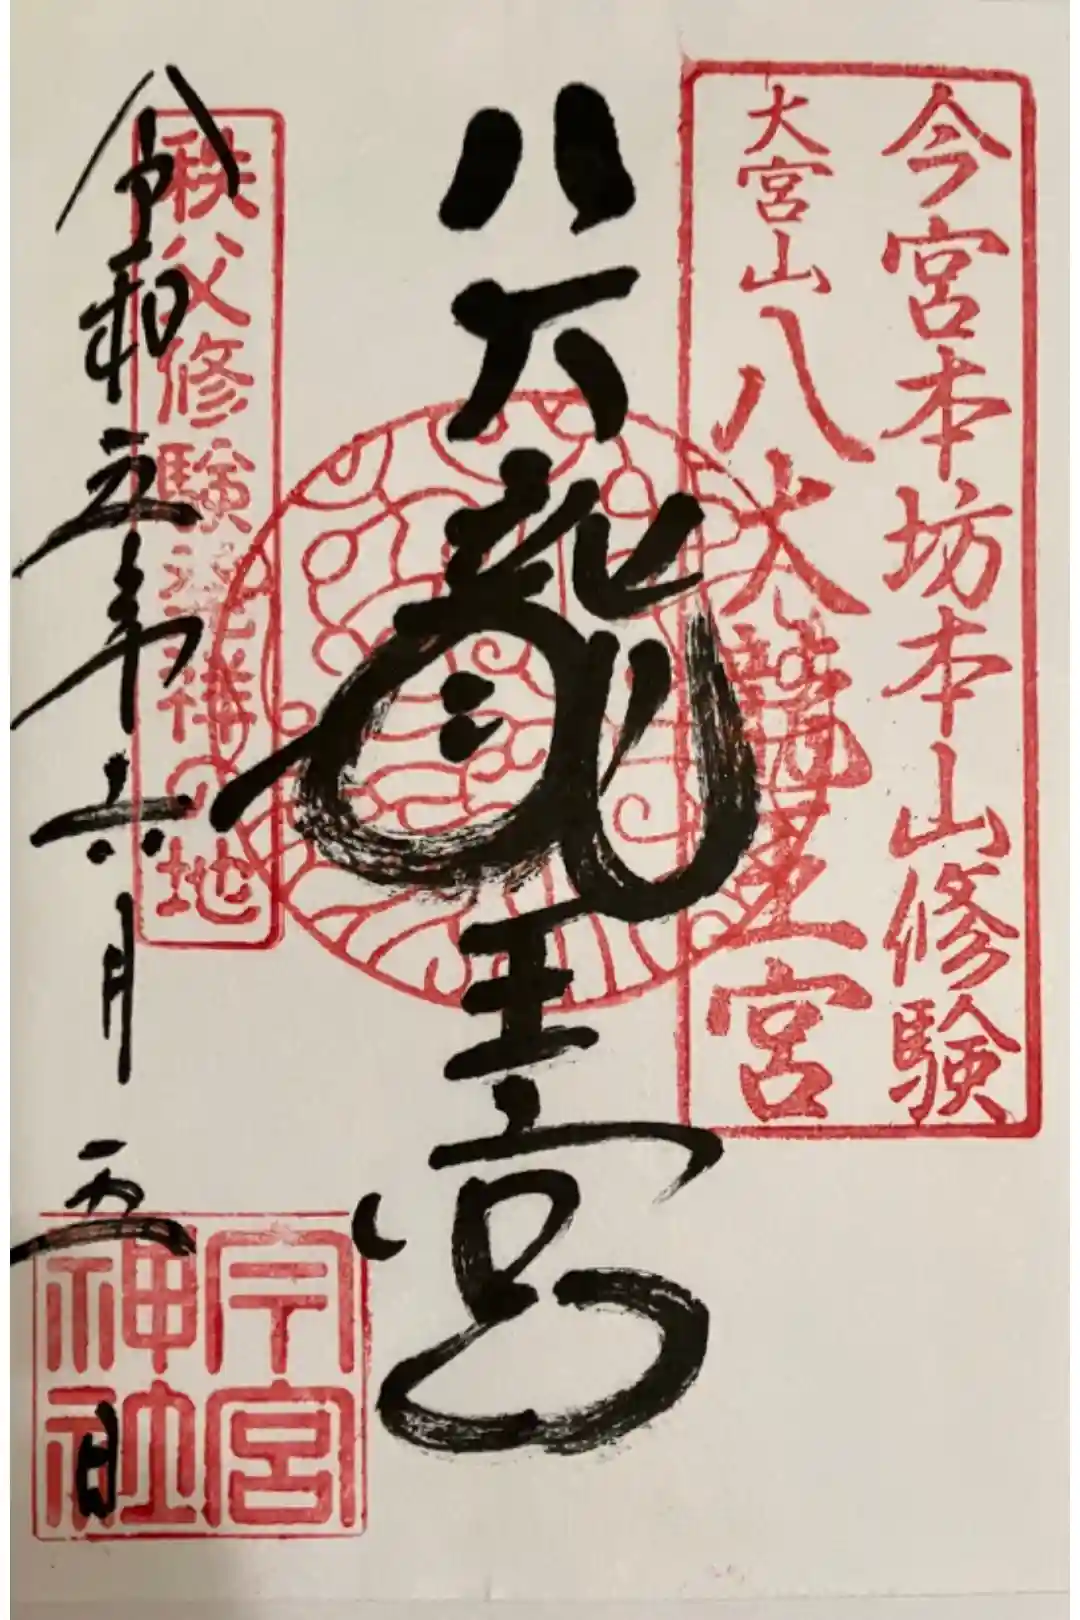 今宮本坊本山修験
大宮山八大龍王宮
八大龍王宮
秩父修験発祥の地
令和五年六月五日
今宮神社